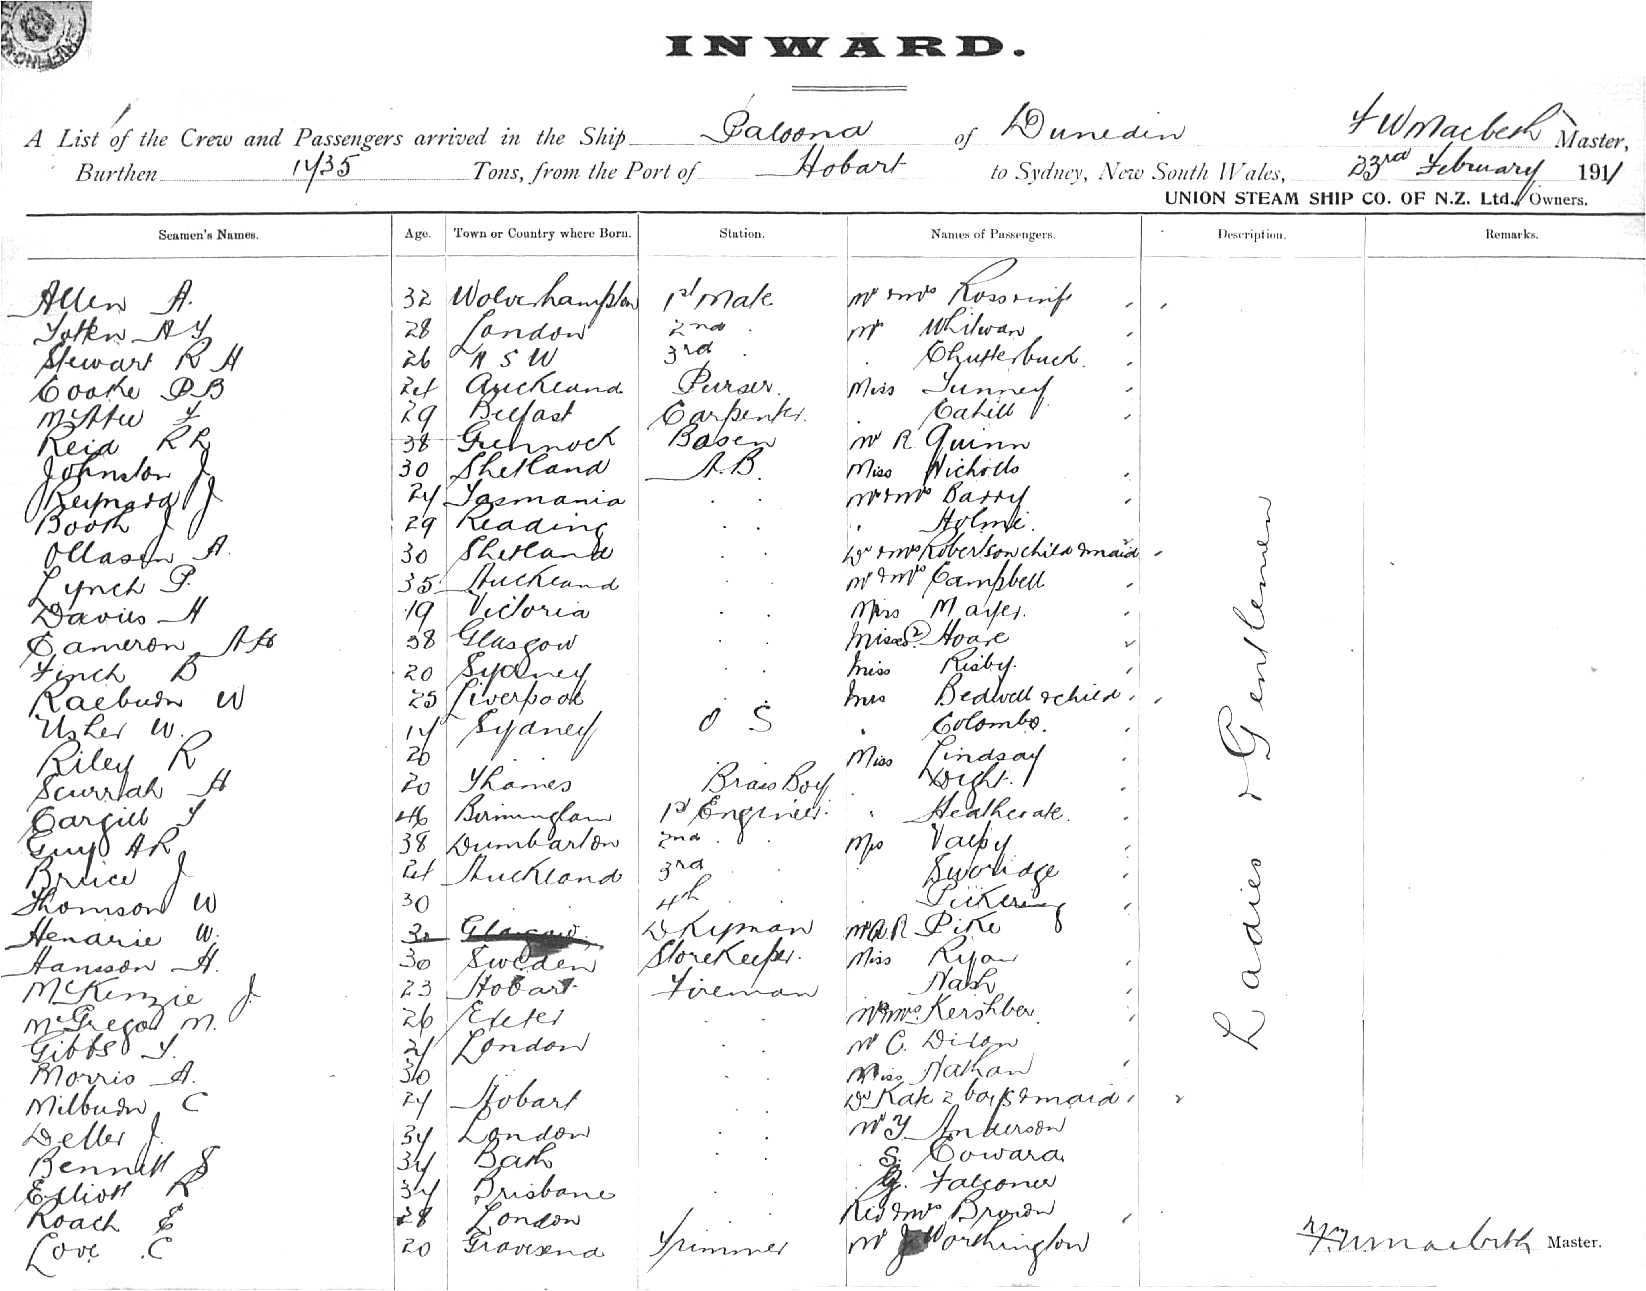 INWARD.
A List of the Crew and Passengers arrived in the Ship Paloona of Dunedin F W Macbeth Master,
Burthen Tons, from the Port of Hobart to Sydney, New South Wales, 23rd February 1911
UNION STEAM SHIP CO. OF N.Z. Ltd., Owners.
Seamen's Names. Age. Town or Country where Born. Station. Names of Passengers. Description. Remarks.
Allen A. 32 Wolverhampton 1st Mate Mr & Mrs
28 London 2nd . Mr
Stewart R H 26 N S W 3rd . . Clutterbuck.
Cooke P B 24 Auckland Purser. Miss Tunney
29 Belfast Carpenter. . Cahill
Reid R R 38 Greenock Bosen Mr R Quinn
Johnston J 30 Shetland A.B. Miss Nicholls
Reynard J Tasmania . . Mr & Mrs Barry
Booth J 29 Reading . . . Holme.
Ollason A. 30 Shetland . . Dr & Mrs Robertson child & maid
Lynch P. 35 Auckland . . Mr & Mrs Campbell
Davies H 19 Victoria . . Miss Mayer.
Cameron 38 Glasgow . . Misses (2) Hoare
Finch B 20 Sydney . . Miss Risby.
Raeburn W 25 Liverpool Mrs Bedwell & child
Usher W. Sydney O S . Colombo.
Riley R 20 Miss Lindsay
Scurrah H 20 Thames Brass Boy Dight.
Cargill T 46 Birmingham 1st Engineer. . Heathcote.
Guy A R 38 Dumbarton 2nd . . Mrs Valpy
Bruce J 24 Auckland 3rd . Swonidge
Thomson W 30 . . 4th . . Pickering
Hendrie W. Glasgow Dkyman Pike
Hansson H. 30 Sweden Storekeeper. Miss Ryan
McKenzie J. 23 Hobart Fireman Nash
McGregor M. 26 Exeter . . Mr & Mrs Kershber
Gibbs T. London . . Mr C. Dixon
Morris A. 30 Miss Nathan
Milburn C Hobart . . Dr Kate 2 boys & maid
Deller J. London . . Mr Anderson
Bennett S Bath . . S. Coward
Elliott R Brisbane . G. Falconer
Roach E 28 London Revd & Mrs Brown
Love C 20 Gravesend Trimmer Mr J Worthington
Ladies & Gentlemen
F. W Macbeth Master.